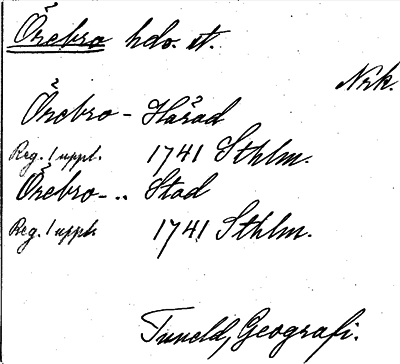 Örebro hdo. st.
Nrk.
Örebro - Härad
Reg. 1 uppl. 1741 Sthlm.
Örebro - .. Stad
Reg. 1 uppl. 1741 Sthlm.
Tuneld, Geografi.